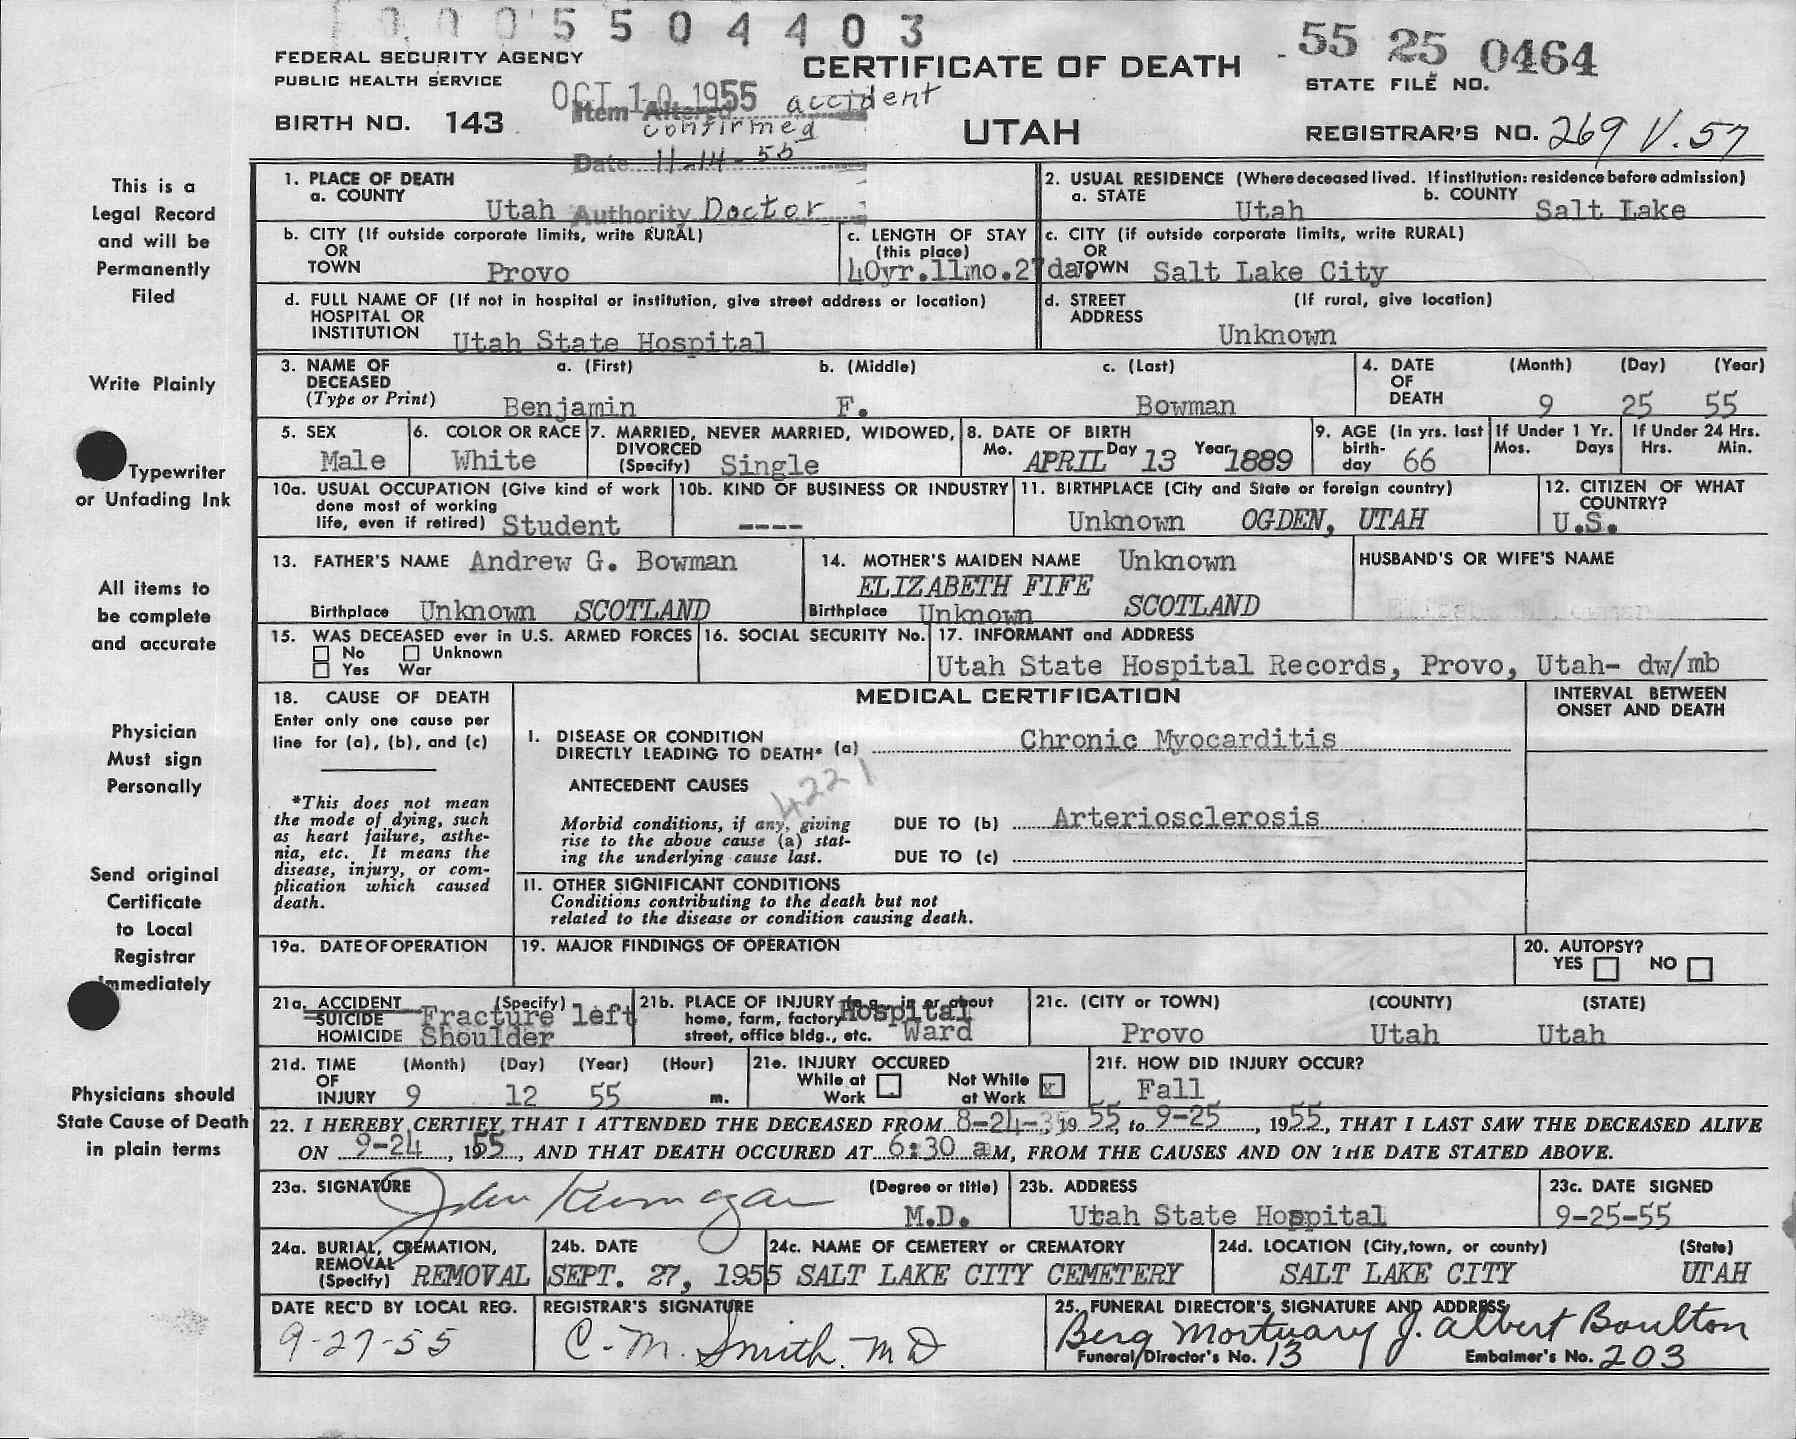 0005504403
FEDERAL SECURITY AGENCY
PUBLIC HEALTH SERVICE
BIRTH NO. 143
OCT 10 1955
Item Altered accident
confirmed
Date 11-14-55
Authority Doctor
CERTIFICATE OF DEATH
UTAH
55 25 0464
STATE FILE NO.
REGISTRAR'S NO. 269 V. 57
This is a
Legal Record
and will be
Permanently
Filed
Write Plainly
Typewriter
or Unfading Ink
All items to
be complete
and accurate
Physician
Must sign
Personally
Send original
Certificate
to Local
Registrar
Immediately
Physicians should
State Cause of Death
in plain terms
1. PLACE OF DEATH
a. COUNTY Utah
2. USUAL RESIDENCE (Where deceased lived. If institution: residence before admission)
a. STATE Utah b. COUNTY Salt Lake
b. CITY (If outside corporate limits, write RURAL)
OR
TOWN Provo
c. LENGTH OF STAY
(this place)
40yr.11mo.27da.
c. CITY (if outside corporate limits, write RURAL)
OR
TOWN Salt Lake City
d. FULL NAME OF (If not in hospital or institution, give street address or location)
HOSPITAL OR
INSTITUTION Utah State Hospital
d. STREET (If rural, give location)
ADDRESS
Unknown
3. NAME OF a. (First) b. (Middle) c. (Last)
DECEASED
(Type or Print) Benjamin F. Bowman
4. DATE (Month) (Day) (Year)
OF
DEATH 9 25 55
5. SEX
Male
6. COLOR OR RACE
White
7. MARRIED, NEVER MARRIED, WIDOWED,
DIVORCED
(Specify) Single
8. DATE OF BIRTH
Mo. APRIL Day 13 Year 1889
9. AGE (in yrs. last
birth-
day 66
If Under 1 Yr.
Mos. Days
If Under 24 Hrs.
Hrs. Min.
10a. USUAL OCCUPATION (Give kind of work
done most of working
life, even if retired) Student
10b. KIND OF BUSINESS OR INDUSTRY
----
11. BIRTHPLACE (City and State or foreign country)
Unknown OGDEN, UTAH
12. CITIZEN OF WHAT
COUNTRY?
U.S.
13. FATHER'S NAME Andrew G. Bowman
Birthplace Unknown SCOTLAND
14. MOTHER'S MAIDEN NAME Unknown
ELIZABETH FIFE
Birthplace Unknown SCOTLAND
HUSBAND'S OR WIFE'S NAME
15. WAS DECEASED ever in U.S. ARMED FORCES
No Unknown
Yes War
16. SOCIAL SECURITY No.
17. INFORMANT and ADDRESS
Utah State Hospital Records, Provo, Utah- dw/mb
18. CAUSE OF DEATH
Enter only one cause per
line for (a), (b), and (c)
*This does not mean
the mode of dying, such
as heart failure, asthe-
nia, etc. It means the
disease, injury, or com-
plication which caused
death.
MEDICAL CERTIFICATION
INTERVAL BETWEEN
ONSET AND DEATH
I. DISEASE OR CONDITION
DIRECTLY LEADING TO DEATH* (a) Chronic Myocarditis
ANTECEDENT CAUSES
4221
Morbid conditions, if any, giving
rise to the above cause (a) stat-
ing the underlying cause last.
DUE TO (b) Arteriosclerosis
DUE TO (c)
II. OTHER SIGNIFICANT CONDITIONS
Conditions contributing to the death but not
related to the disease or condition causing death.
19a. DATE OF OPERATION
19. MAJOR FINDINGS OF OPERATION
20. AUTOPSY?
YES NO
21a. ACCIDENT (Specify)
SUICIDE Fracture left
HOMICIDE Shoulder
21b. PLACE OF INJURY (e.g., in or about
home, farm, factory Hospital
street, office bldg., etc. Ward
21c. (CITY or TOWN) (COUNTY) (STATE)
Provo Utah Utah
21d. TIME (Month) (Day) (Year) (Hour)
OF
INJURY 9 12 55 m.
21e. INJURY OCCURED
While at Not While
Work at Work x
21f. HOW DID INJURY OCCUR?
Fall
22. I HEREBY CERTIFY THAT I ATTENDED THE DECEASED FROM 8-24- 1955, to 9-25, 1955, THAT I LAST SAW THE DECEASED ALIVE
ON 9-24, 1955, AND THAT DEATH OCCURED AT 6:30 am, FROM THE CAUSES AND ON THE DATE STATED ABOVE.
23a. SIGNATURE (Degree or title)
M.D.
23b. ADDRESS
Utah State Hospital
23c. DATE SIGNED
9-25-55
24a. BURIAL, CREMATION,
REMOVAL
(Specify) REMOVAL
24b. DATE
SEPT. 27, 1955
24c. NAME OF CEMETERY or CREMATORY
SALT LAKE CITY CEMETERY
24d. LOCATION (City, town, or county) (State)
SALT LAKE CITY UTAH
DATE REC'D BY LOCAL REG.
9-27-55
REGISTRAR'S SIGNATURE
C. M. Smith. MD
25. FUNERAL DIRECTOR'S SIGNATURE AND ADDRESS
Berg Mortuary J. Albert Boulton
Funeral Director's No. 13 Embalmer's No. 203